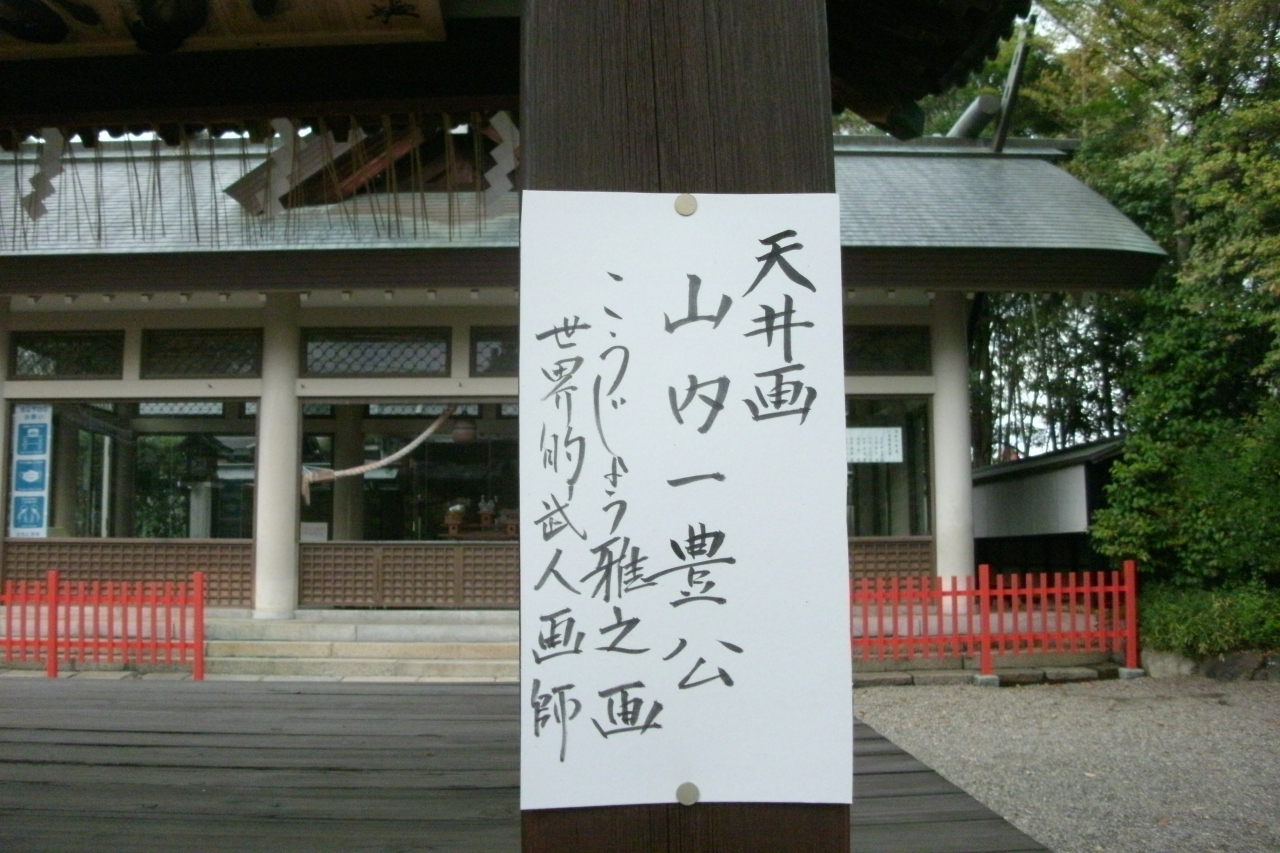 天井画
山内一豊公
こうじょう雅之画
世界的武人画師